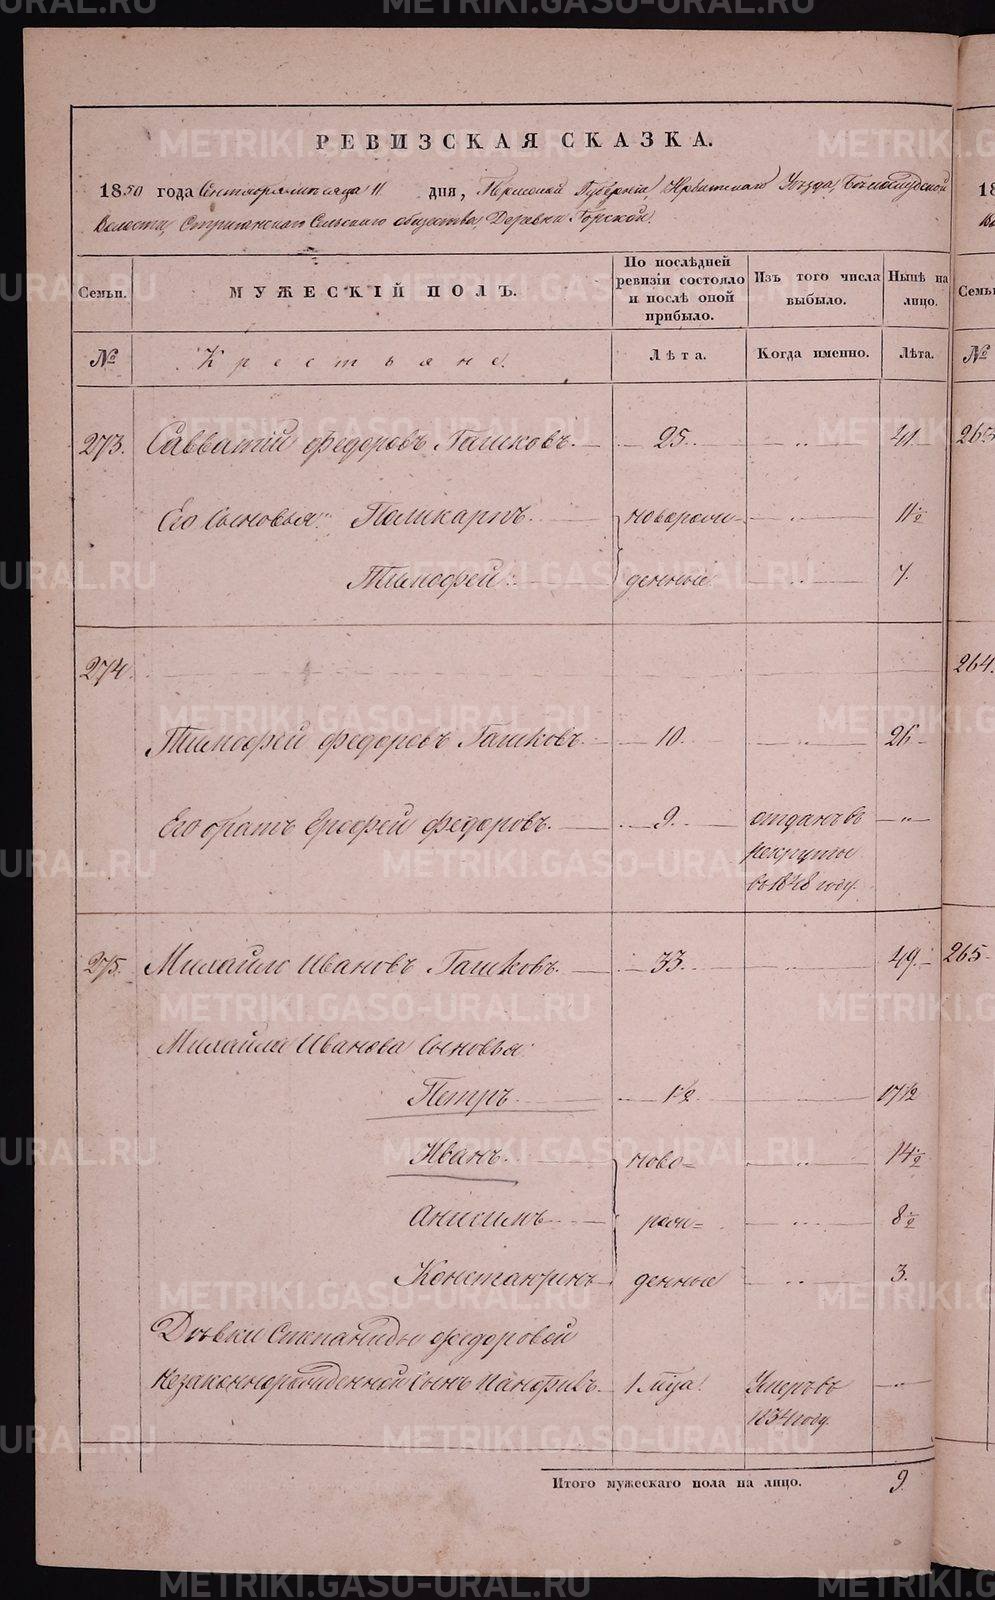 РЕВИЗСКАЯ СКАЗКА.
1850 года Сентября мѣсяца 11 дня, Пермской Губерніи, Ирбитскаго Уѣзда, Бѣлослудской
Волости, Стриганскаго Сельскаго общества, Деревни Горской.
Семьи. МУЖЕСКІЙ ПОЛЪ. По послѣдней ревизіи состояло и послѣ оной прибыло. Изъ того числа выбыло. Нынѣ на лицо. Семьи
№ Крестьяне. Лѣта. Когда именно. Лѣта. №
273. Савватій Федоровъ Гашковъ. 25. " 41 263
Его Сыновья: Поликарпъ. новорож- " 11½
Тимофей. денные " 7.
274. 264.
Тимофей Федоровъ Гашковъ. 10. " 26
Его братъ Ерофей Федоровъ. 9. отданъ въ "
рекруты
въ 1848 году.
275. Михайло Ивановъ Гашковъ. 33. 49. 265
Михайла Иванова Сыновья:
Петръ 1½ 17½
Иванъ. ново- " 14½
Анисимъ рож- " 8½
Константинъ денные " 3.
Дѣвки Степаниды Федоровой
Незаконнорожденной Сынъ Панфилъ. 1 мѣс. Умеръ въ "
1834 году.
Итого мужескаго пола на лицо. 9
METRIKI.GASO-URAL.RU